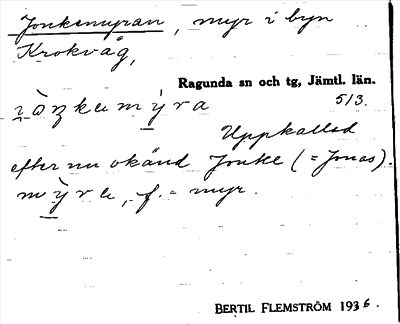 Jonkemyran, myr i byn
Krokvåg,
Ragunda sn och tg, Jämtl. län.
5/3.
Uppkallad
efter nu okänd Jonke (= Jonas).
f. = myr.
BERTIL FLEMSTRÖM 1936.